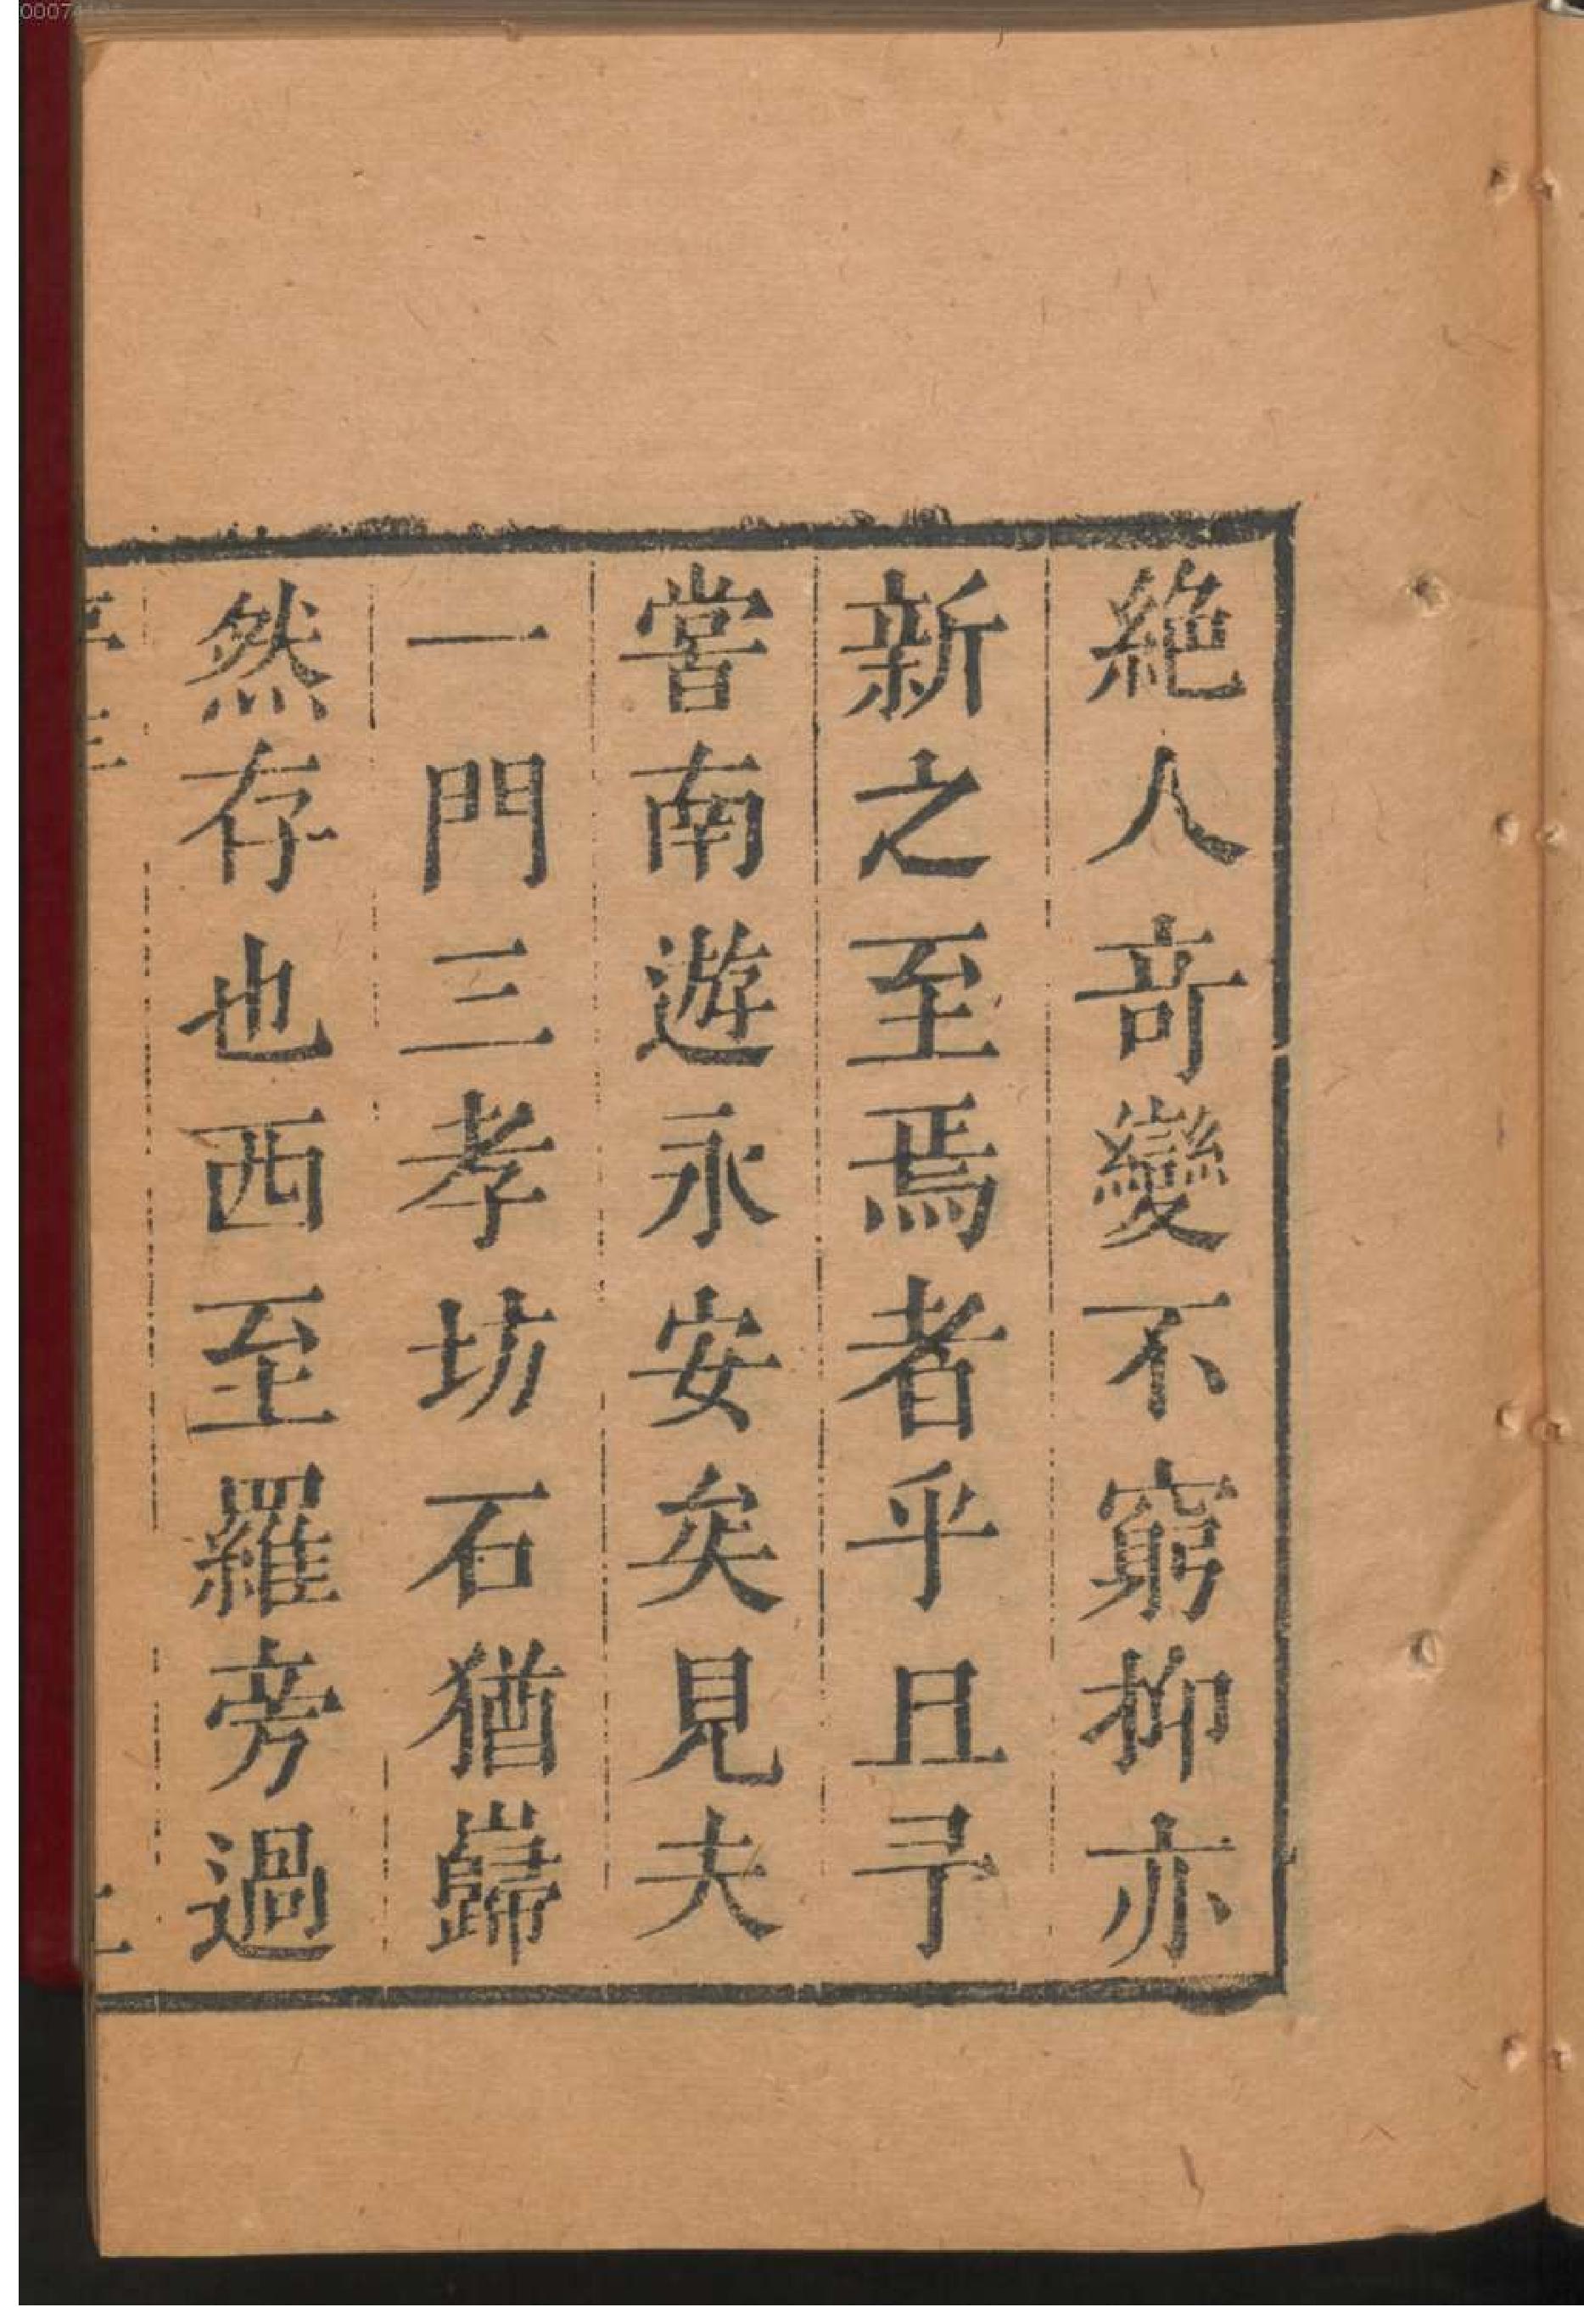 絶人竒變不窮抑亦
新之至焉者乎且予
嘗南遊永安矣見夫
一門三孝坊石猶巋
然存也西至羅旁過